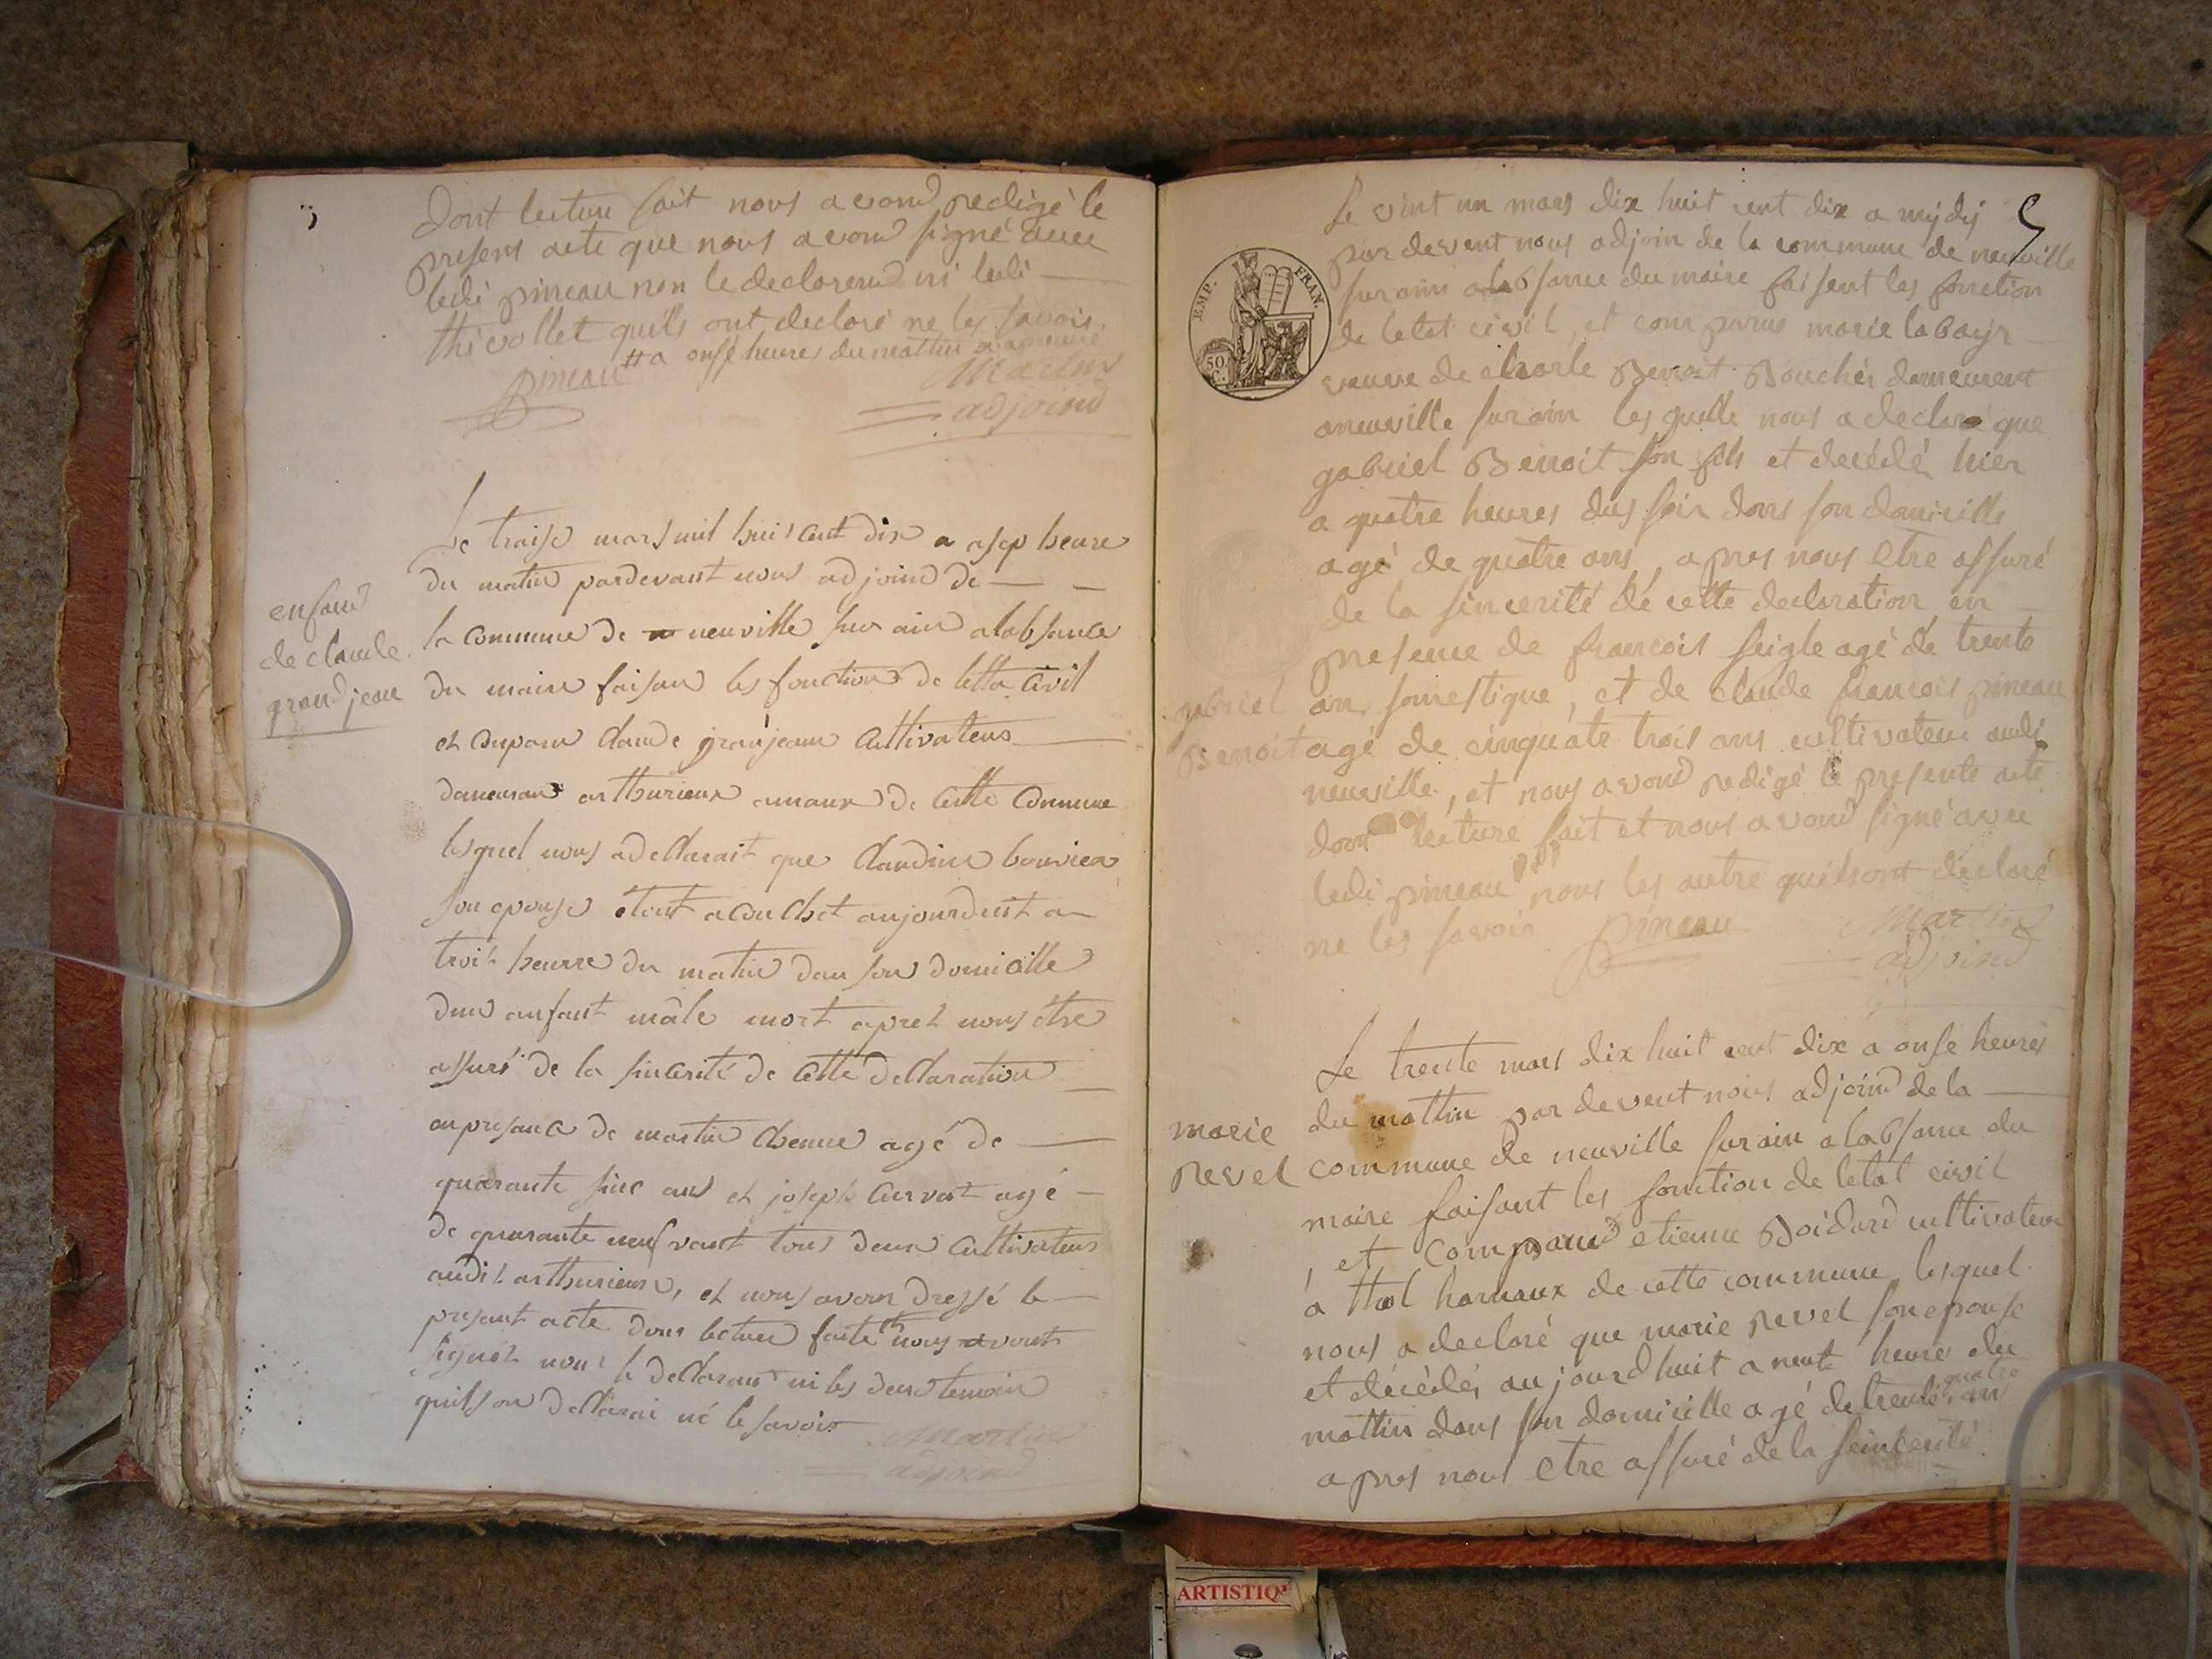 Dont lecture fait nous avond redigé le
presens acte que nous avond signé avec
ledi pineau non le declarend ni ledi
thivollet quils ont declaré ne les savoir.
# a onse heures du mattin
Pineau
Martin
adjoind
Le traise mars mil huit cent dix a asep heure
du matin pardevant nous adjoind de
la commune de neuville sur ain alabsance
du maire faisan les fonction de letta civil
et conparu claude granjean cultivateus
demeurant arthurieux amaux de cette commune
lesquel nous adellarait que claudine bouvier
son epouse étent acouchet aujourduit a
trois heurre du matin dan son domicille
dun anfant mâle mort apret nous étre
assuré de la sincerité de cette dellaration
enpresance de martin chenue agé de
quarante sinc ans et joseph curvat agé
de quarante neuf vant tous deux cultivateus
audit arthurieux, et nous avon dressé le
presant acte dont lecture faite nous avont
signet non le dellarant ni les deux temoin
quils on dellarai né le savoir
Martin
adjoind
enfand
de claude
grandjean
5
EMP. FRAN.
50 C.
Le vint un mars dix huit cent dix a mydy
par devent nous adjoin de la commune de neuville
sur ain alabsance du maire faisent les fonction
de letat civil, et comparus marie labayr
veuve de charle Benoit Bouchér demeurent
aneuville sur ain lesquelle nous a declaré que
gabriel Benoit son fils et decédé hier
a quatre heures dus soir dans son domicille
agé de quatre ans, apres nous etre assuré
de la sincerité de cette declaration en
presence de francois seigle agé de trente
gabriel
Benoit
an, domestique, et de claude francois pineau
agé de cinquate trois ans cultivateur audi
neuville, et nous avond redigé le presente acte
dont lecture fait et nous avond signé avec
ledi pineau nons les autre quilsont declaré
ne les savoir
Pineau
Martin
adjoind
Le trente mars dix huit cent dix a onse heures
du mattin par devent nous adjoind de la
marie
revel
commune de neuville sur ain alabsance du
maire faisant les fonction de letat civil
, et comparud etienne Boidard cultivateur
a thol hamaux de cette commune lesquel
nous a declaré que marie revel son epouse
et décédés aujourdhuit a neufe heure du
mattin dans son domicille agé de trente quatre ans
apres nous etre assuré de la seincerité
ARTISTIQ